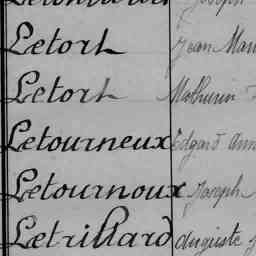 Letort Jean Mari
Letort Mathurin
Letourneux Edgard Ann
Letournoux Joseph
Letrillard Auguste J